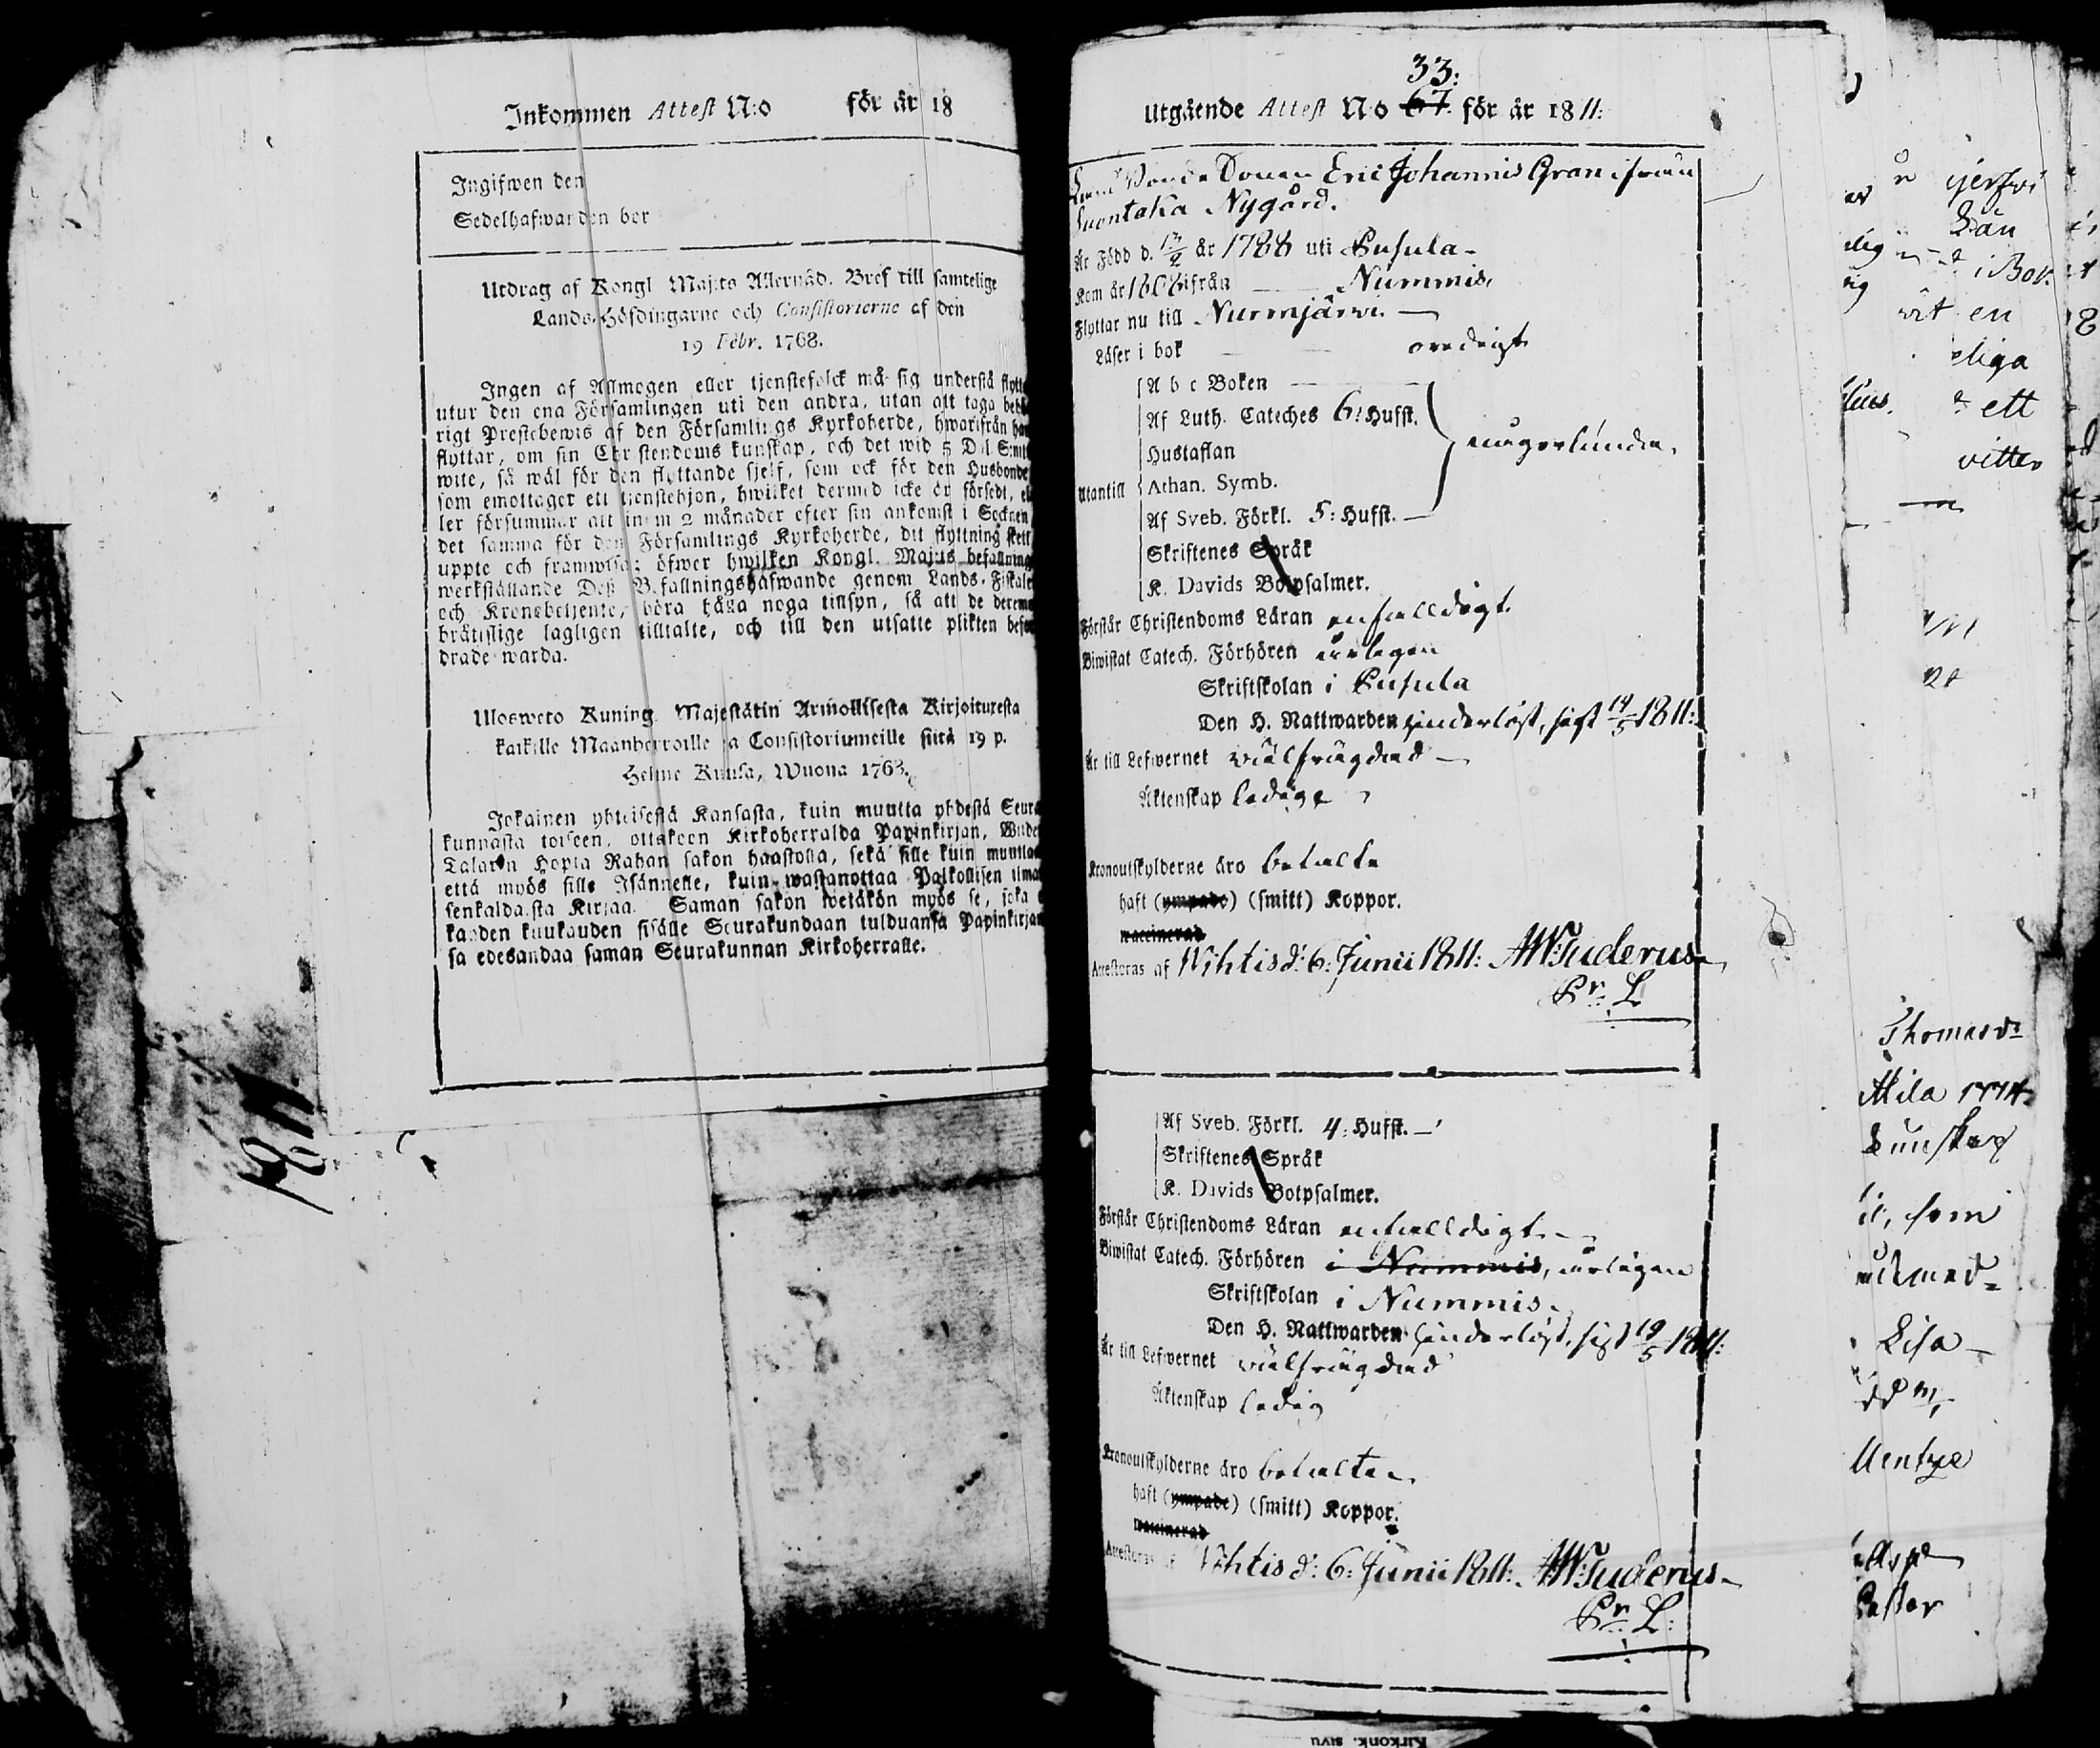 Inkommen Attest N:o för år 18
Ingifwen den
Sedelhafwanden bor
Utdrag af Kongl Maj:ts Allernåd. Bref till samtelige
Lands-Höfdingarne och Consistorierne af den
19 Febr. 1768.
Ingen af Allmogen eller tjenstefolck må sig understå flytta
utur den ena Församlingen uti den andra, utan att taga behö
rigt Prestebewis af den Församlings Kyrkoherde, hwarifrån han
flyttar, om sin Christendoms kunskap, och det wid 5 Dal S:mts
wite, så wäl för den flyttande sjelf, som ock för den Husbonde
som emottager ett tienstehjon, hwilket dermed icke är försedt, el
ler försummar att inom 2 månader efter sin ankomst i Socknen
det samma för den Församlings Kyrkoherde, dit flyttning skett
uppte och framwisa: öfwer hwilken Kongl. Maj:ts befallning
werkställande Deß Befallningshafwande genom Lands-Fiskaler
och Kronobetjente, böra håga noga tillsyn, så att de deremot
brätslige lagligen tilltalte, och till den utsatte plikten befor
drade warda.
Uloswето Kuning. Majestätin Armollisesta Kirjoituxesta
kaikille Maanherroille ja Consistoriumeille siitä 19 p.
Helme Kuusa, Wuona 1768.
Jokainen yhteisestä Kansasta, kuin muutta yhdestä Seura
kunnasta toiseen, ottakoon Kirkoherralda Papinkirjan, Wiide
Talarin Hopia Rahan sakon haastolla, sekä sille kuin muuttaa
että myös sille Isännelle, kuin wastanottaa Palkollisen ilma
senkaldaista Kirjaa. Saman sakon wetäkön myös se, joka e
kahden kuukauden sisälle Seurakundaan tulduansa Papinkirjan
sa edesandaa saman Seurakunnan Kirkoherralle.
1811
33:
Utgående Attest No 67 för år 1811:
Bonde Sonen Eric Johannis Gran ifrån
Suontaka Nygård.
Är Född d. år 1788 uti Pusula
Kom år 1808 ifrån Nummis,
Flyttar nu till Nurmjärvi.
Läser i bok oredigt
A b c Boken
Af Luth. Cateches 6: Hufst.
Hustaflan någorlunda.
Utantill Athan. Symb.
Af Sveb. Förkl. 5: Hufst.
Skriftenes Språk
K. Davids Botpsalmer.
Förstår Christendoms Läran enfalldigt
Biwistat Catech. Förhören årligen
Skriftskolan i Pusula
Den H. Nattwarden hinderlöst, sist 19/5 1811:
Är till Lefwernet wälfrägdad
Äktenskap ledige
Kronoutskylderne äro betalte
haft (ympade) (smitt) Koppor.
waccinerad
Attesteras af Wihtis d: 6: Junii 1811: AW:Tuderus
Pr: L
Af Sveb. Förkl. 4: Hufst.
Skriftenes Språk
K. Davids Botpsalmer.
Förstår Christendoms Läran enfalldigt
Biwistat Catech. Förhören i Nummis, årligen
Skriftskolan i Nummis.
Den H. Nattwarden hinderlöst, sist 19/5 1811:
Är till Lefwernet wälfrägdad
Äktenskap ledig
Kronoutskylderne äro betalte
haft (ympade) (smitt) Koppor.
waccinerad
Attesteras af Wihtis d: 6: Junii 1811: AW:Tuderus
Pr: L:
i Bor.
en
eliga
ett
Thomasd:
Attila 1774.
Kunskap
som
Lisa
Mentze
Pastor
Kirkonk. sivu